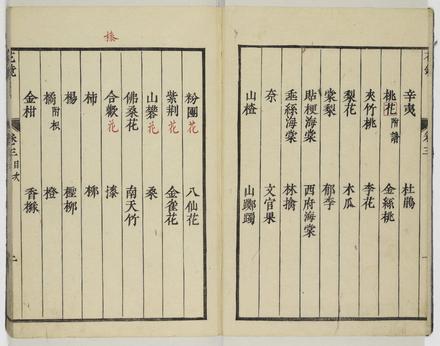 辛夷 杜鵑
桃花 附譜 金絲桃
夾竹桃 李花
梨花 木瓜
棠梨 郁李
貼梗海棠 西府海棠
垂絲海棠 林擒
柰 文官果
山楂 山躑躅
卷三
粉團花 八仙花
紫荆花 金雀花
山礬花 桑
佛桑花 南天竹
合歡花 漆
柿
楊 檉柳
橘 附 橙
金柑 香橼
花鏡 卷三目次 二